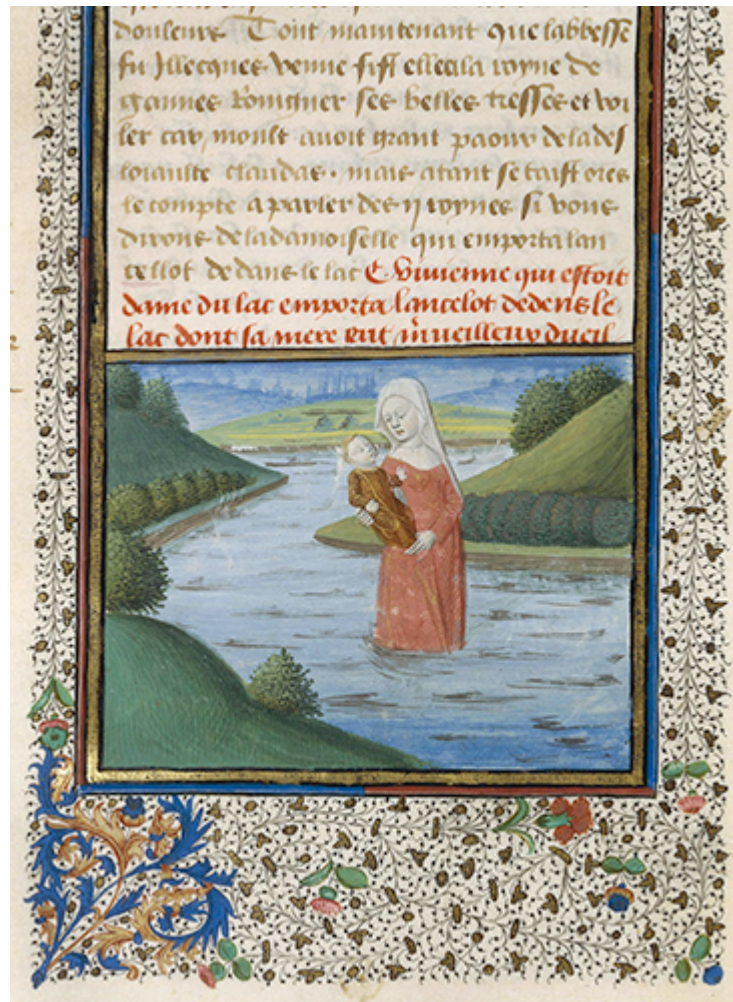 douleurs Tout maintenant que labbesse
fu Illecques venue fist elle a la royne de
gannes Roingner ses belles tresses et voi
ler car moult auoit grant paour de la des
loiaulte claudas. mais atant se taist ores
le compte a parler des ij roynes si vous
dirons de la damoiselle qui emporta lan
cellot de dans le lac Viuienne qui estoit
dame du lac emporta lancelot dedens le
lac dont sa mere eut merueilleux dueil